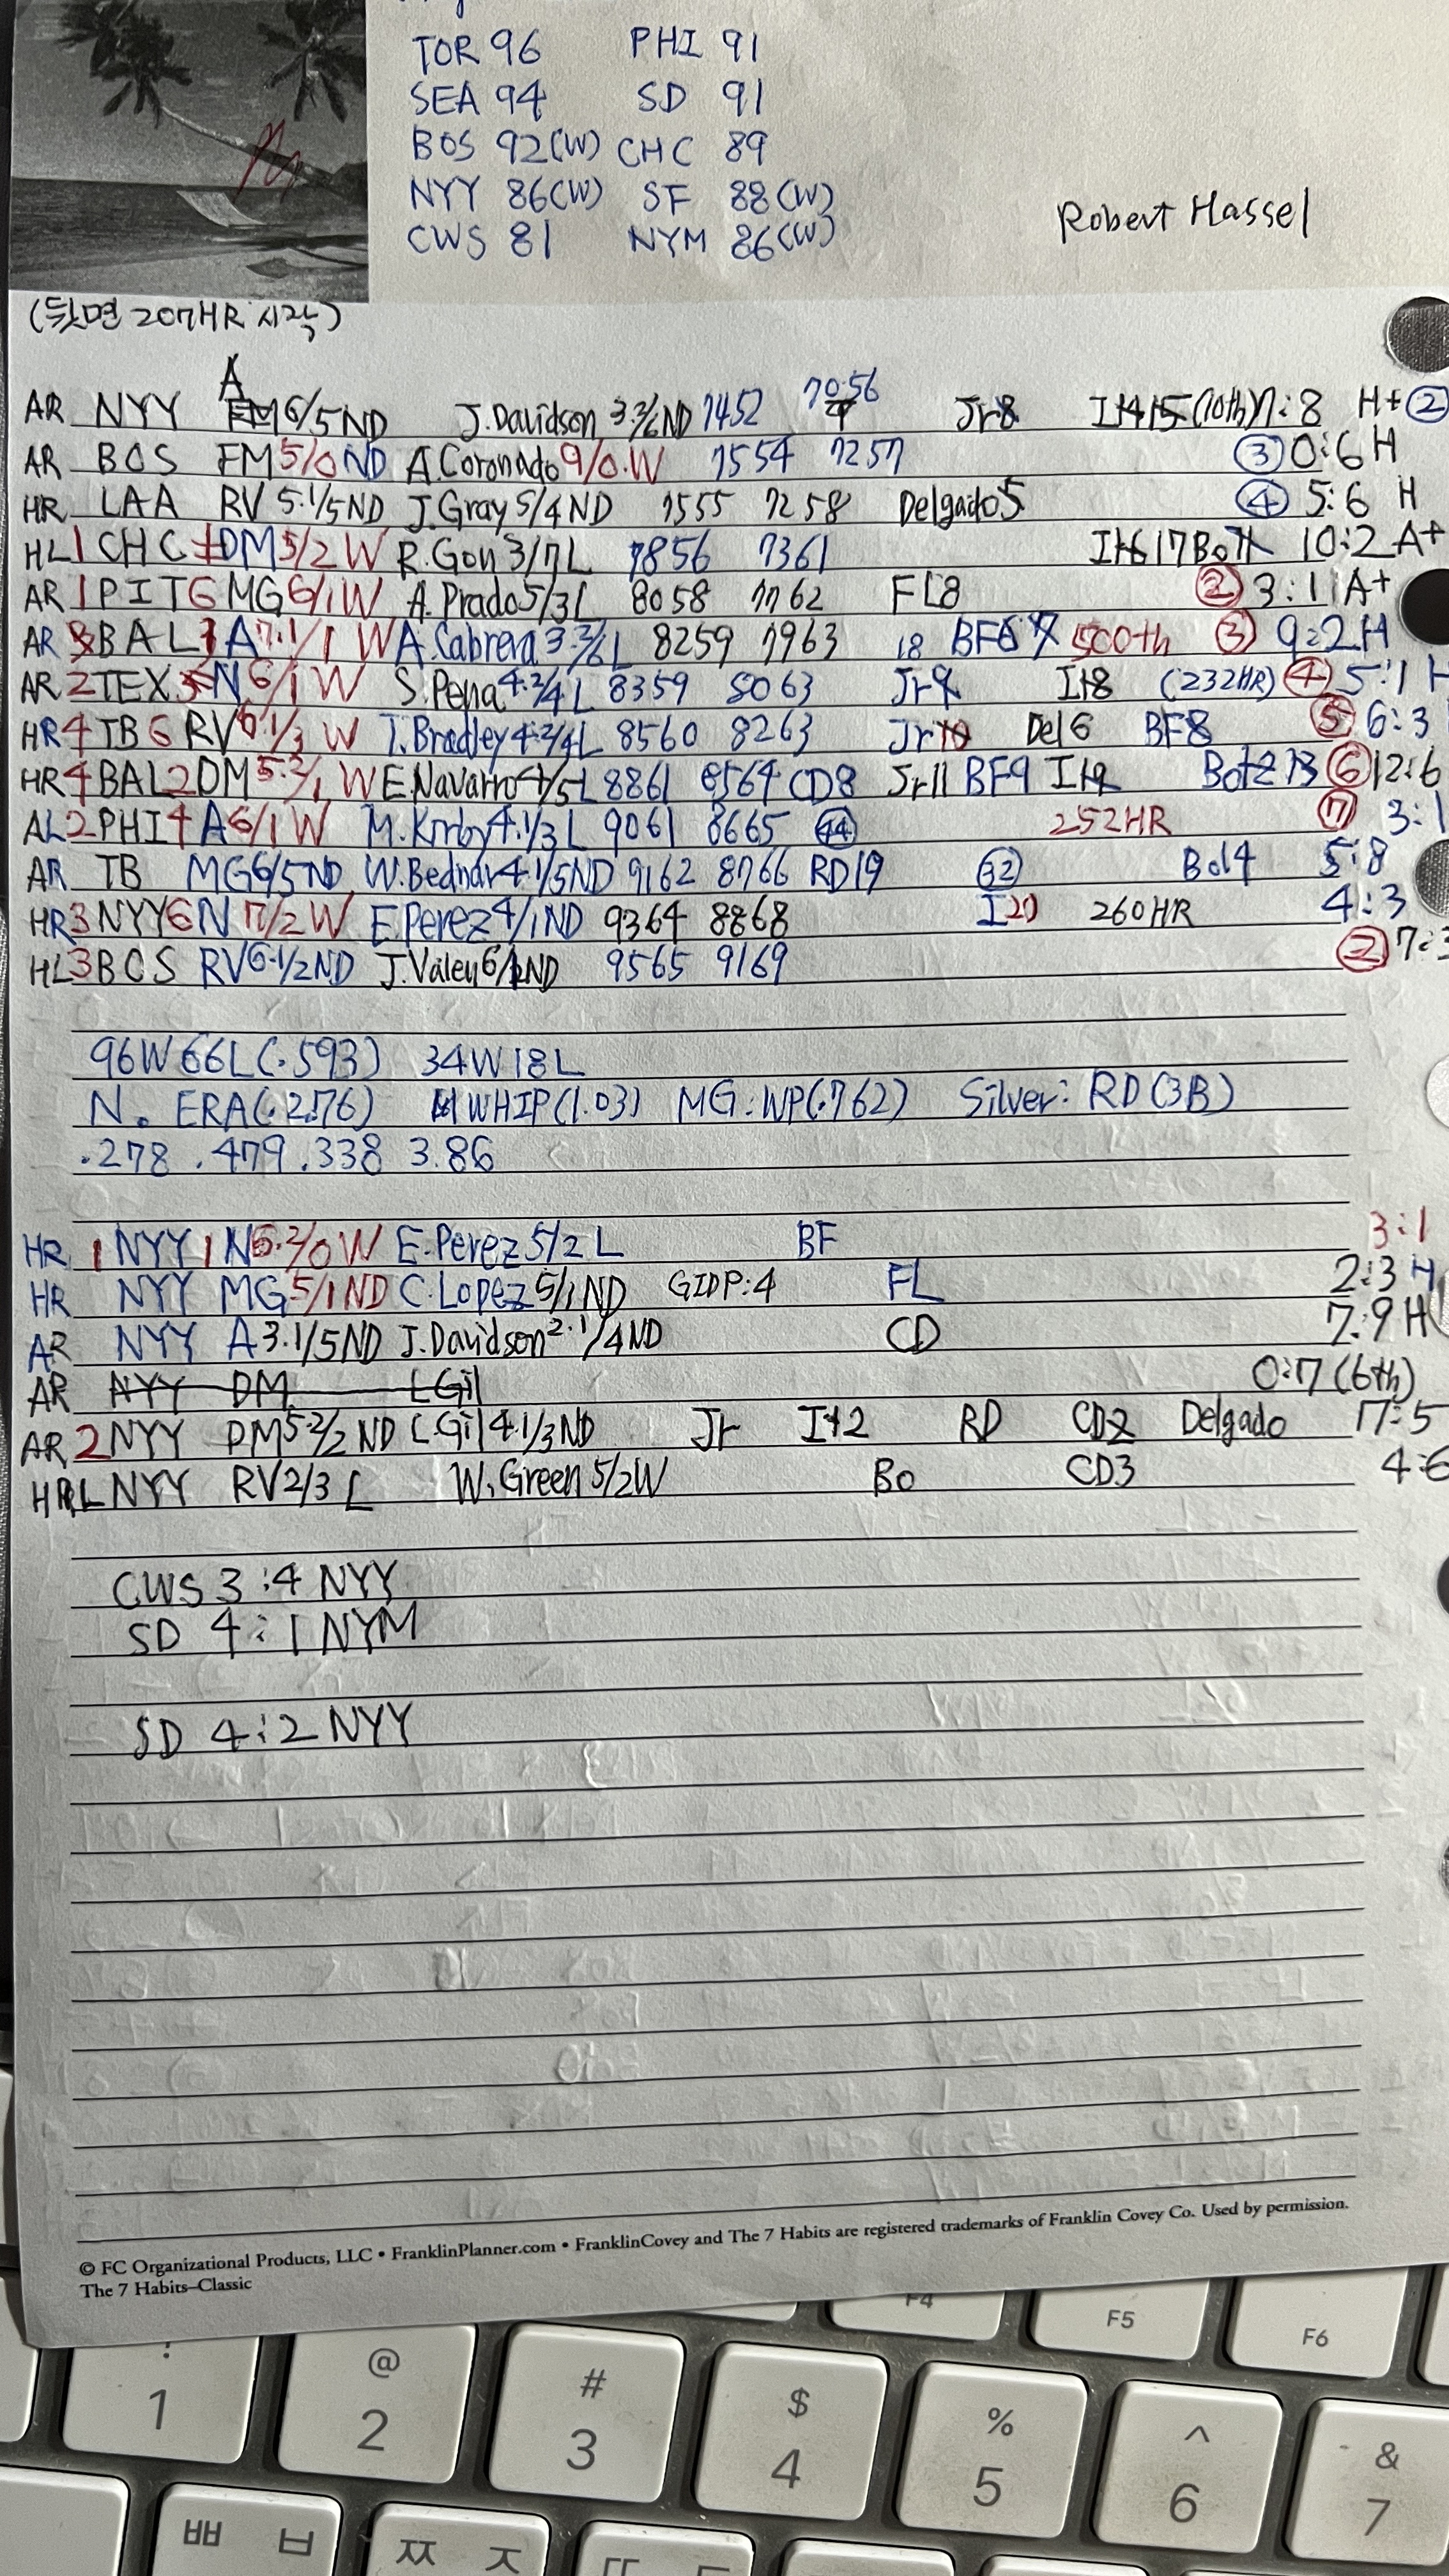 TOR 96 PHI 91
SEA 94 SD 91
BOS 92(W) CHC 89
NYY 86(W) SF 88(W)
CWS 81 NYM 86(W)
Robert Hassel
(뒷면 207HR 시작)
AR NYY A 6/5 ND J.Davidson 3.2/6 ND 7452 7056 Jr8 (10th) 7:8 H+②
AR BOS FM 5/0 ND A.Coronado 9/0.W 7554 7257 ③ 0:6 H
HR LAA RV 5.1/5 ND J.Gray 5/4 ND 7555 7258 Delgado5 ④ 5:6 H
HL1 CHC DM 5/2 W R.Gon 3/7 L 7856 7361 10:2 A+
AR1 PIT6 MG 6/1 W A.Prado 5/3 L 8058 7762 FL8 ② 3:1 A+
AR BAL1 A 7.1/1 W A.Cabrera 3.2/6 L 8259 7963 18 500th ③ 9:2 H
AR2 TEX N 6/1 W S.Pena 4.2/4 L 8359 8063 It8 (232HR) ④ 5:1 H
HR4 TB6 RV 6.1/3 W T.Bradley 4.2/4 L 8560 8263 Jr10 Del6 BF8 ⑤ 6:3
HR4 BAL2 DM 5.2/1 W E.Navarro 4/5 L 8861 8564 CD8 Jr11 BF9 ⑥ 12:6
AL2 PHI4 A 6/1 W M.Kirby 4.1/3 L 9061 8665 44 252HR ⑦ 3:1
AR TB MG 6/5 ND W.Bednar 4.1/5 ND 9162 8766 RD19 32 Bo14 5:8
HR3 NYY6 N 7/2 W E.Perez 4/1 ND 9364 8868 260HR 4:3
HL3 BOS RV 6.1/2 ND ND 9565 9169 ② 7:3
96W 66L (.593) 34W 18L
N. ERA(.2.76) WHIP(1.03) MG:WP(.762) Silver: RD(3B)
.278 .479 .338 3.86
HR 1 NYY 1 N 5.2/0 W E.Perez 5/2 L BF 3:1
HR NYY MG 5/1 ND C.Lopez 5/1 ND GIDP:4 FL 2:3 H
AR NYY A 3.1/5 ND J.Davidson 2.1/4 ND CD 7:9 H
AR NYY DM L Gil 0:7 (6th)
AR 2 NYY DM 5.2/2 ND L.Gil 4.1/3 ND Jr It2 RD CD2 Delgado 7:5
NYY RV 2/3 L W.Green 5/2 W Bo CD3 4:6
CWS 3:4 NYY
SD 4:1 NYM
SD 4:2 NYY
© FC Organizational Products, LLC • FranklinPlanner.com • FranklinCovey and The 7 Habits are registered trademarks of Franklin Covey Co. Used by permission.
The 7 Habits–Classic
F4 F5 F6
! @ # $ % ^ &
1 2 3 4 5 6 7
ㅃ ㅂ ㅉ ㅈ